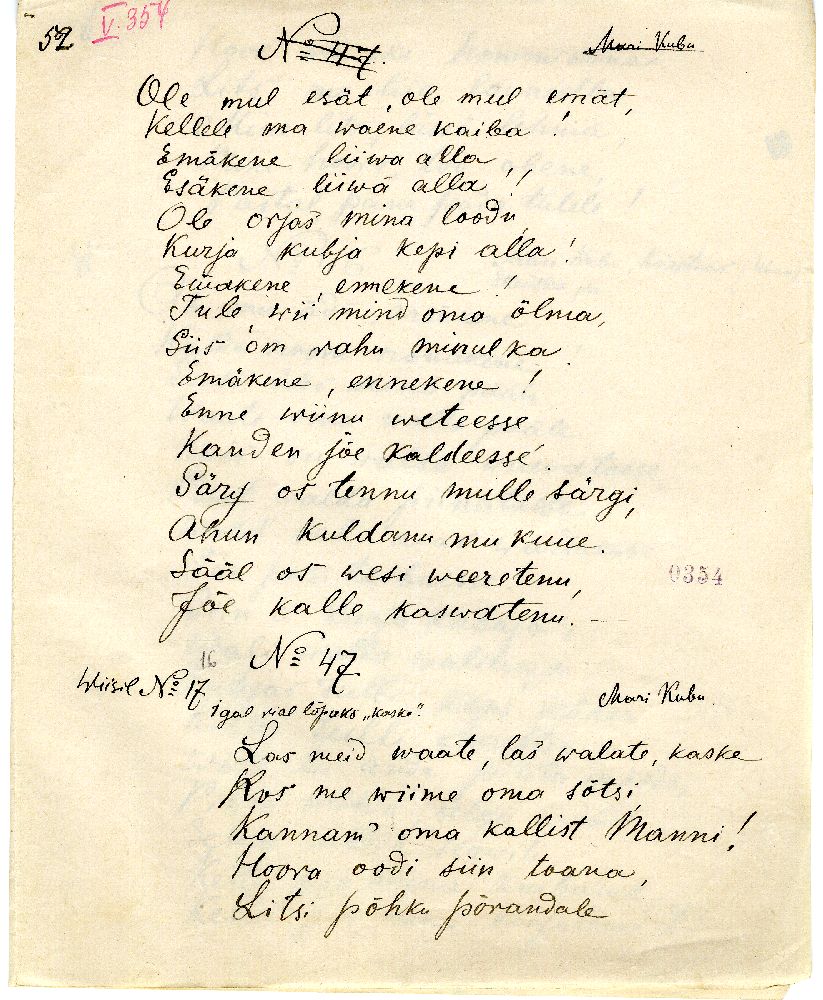 52
V. 354
№ 47.
Mari Kubu
Ole mul esät, ole mul emät,
Kellele ma waene kaiba!
Emäkene liiwa alla,
Esäkene liiwä alla!!
Ole orjas mina loodu,
Kurja kubja kepi alla!
Emäkene, ennekene!
Tule wii mind oma õlma,
Siis om rahu minul ka.
Emäkene, ennekene!
Enne wiinu weteesse
Kanden jõe kaldeesse.
Särg os tennu mulle särgi,
Ahun kuldanu mu kuue.
Sääl os wesi weeretenu,
Jõe kalle kaswatenu. —
16 № 47
Wiisil № 17
Mari Kubu.
igal rial lõpuks „kaske".
Las meid waate, las walate, kaske
Kos me wiime oma sõtsi,
Kannam oma kallist Manni!
Hoora oodi siin toana,
Litsi põhku põrandale
0354